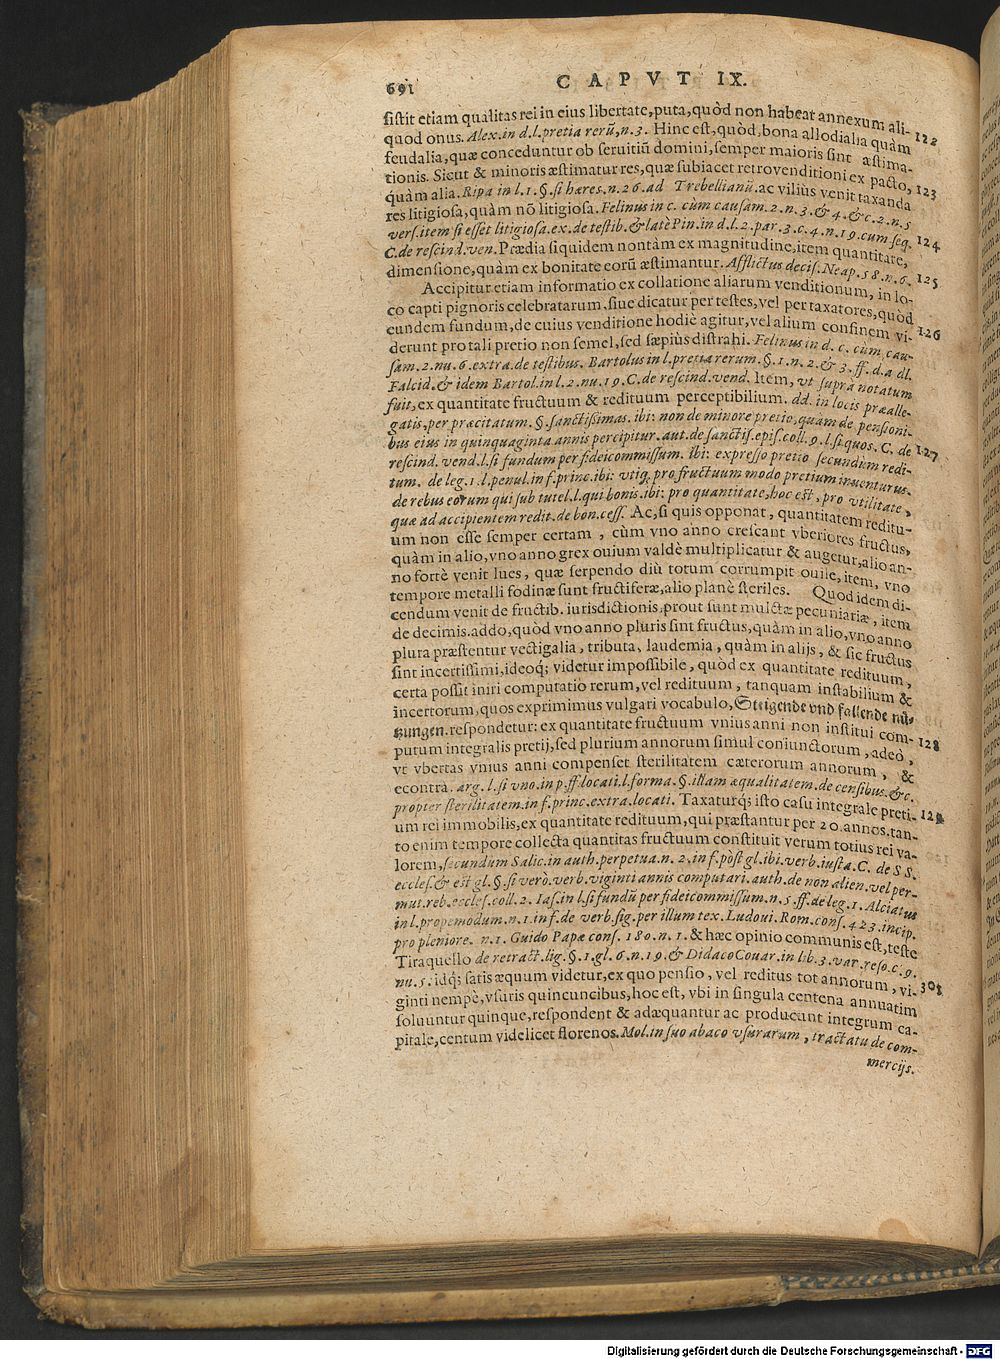 691 CAPVT IX.
sistit etiam qualitas rei in eius libertate, puta, quòd non habeat annexum ali-
quod onus. Alex. in d. l. pretia rerũ, n. 3. Hinc est, quòd, bona allodialia quàm 122
feudalia, quæ conceduntur ob seruitiũ domini, semper maioris sint æstima-
tionis. Sicut & minoris æstimatur res, quæ subiacet retrovenditioni ex pacto,
quàm alia. Ripa in l. 1. §. si hæres. n. 26. ad Trebellianũ. ac viliùs venit taxanda 123
res litigiosa, quàm nõ litigiosa. Felinus in c. cùm causam. 2. n. 3. & 4. & c. 2. n. 5
vers. item si esset litigiosa. ex. de testib. & latè Pin. in d. l. 2. par. 3. c. 4. n. 19. cum seq.
C. de rescind. ven. Prædia siquidem non tàm ex magnitudine, item quantitate, 124
dimensione, quàm ex bonitate eorũ æstimantur. Afflictus decis. Neap. 58. n. 6.
Accipitur etiam informatio ex collatione aliarum venditionum, in lo- 125
co capti pignoris celebratarum, siue dicatur per testes, vel per taxatores, quòd
eundem fundum, de cuius venditione hodiè agitur, vel alium confinem vi- 126
derunt pro tali pretio non semel, sed sæpiùs distrahi. Felinus in d. c. cùm cau-
sam. 2. nu. 6. extra. de testibus. Bartolus in l. pretia rerum. §. 1. n. 2. & 3. ff. d. a d l.
Falcid. & idem Bartol. in l. 2. nu. 19. C. de rescind. vend. Item, vt suprà notatum
fuit, ex quantitate fructuum & redituum perceptibilium. dd. in locis præalle-
gatis. per præcitatum. §. sanctissimas. ibi: non de minore pretio, quàm de pensioni-
bus eius in quinquaginta annis percipitur. aut. de sanctis. epis. coll. 9. l. si quos. C. de 127
rescind. vend. l. si fundum per fideicommissum. ibi: expresso pretio secundum redi-
tum. de leg. 1. l. penul. in f. princ. ibi: vtiq; pro fructuum modo pretium inuenturus.
de rebus eorum qui sub tutel. l. qui bonis. ibi: pro quantitate, hoc est, pro vtilitate,
quæ ad accipientem redit. de bon. cess. Ac, si quis opponat, quantitatem reditu-
um non esse semper certam, cùm vno anno crescant vberiores fructus,
quàm in alio, vno anno grex ouium valdè multiplicatur & augetur, alio an-
no fortè venit lues, quæ serpendo diù totum corrumpit ouile, item, vno
tempore metalli fodinæ sunt fructiferæ, alio planè steriles. Quod idem di-
cendum venit de fructib. iurisdictionis, prout sunt mulctæ pecuniariæ, item
de decimis. addo, quòd vno anno pluris sint fructus, quàm in alio, vno anno
plura præstentur vectigalia, tributa, laudemia, quàm in alijs, & sic fructus
sint incertissimi, ideoq; videtur impossibile, quòd ex quantitate redituum,
certa possit iniri computatio rerum, vel redituum, tanquam instabilium &
incertorum, quos exprimimus vulgari vocabulo, Steigende vnd fallende nü-
tzungen. respondetur: ex quantitate fructuum vnius anni non institui com-
putum integralis pretij, sed plurium annorum simul coniunctorum, adeò, 128
vt vbertas vnius anni compenset sterilitatem cæterorum annorum, &
econtrà. arg. l. si vno. in p. ff. locati. l. forma. §. illam æqualitatem. de censibus. & c.
propter sterilitatem. in f. princ. extra. locati. Taxaturq; isto casu integrale preti- 129
um rei immobilis, ex quantitate redituum, qui præstantur per 20. annos, tan-
to enim tempore collecta quantitas fructuum constituit verum totius rei va-
lorem, secundum Salic. in auth. perpetua. n. 2. in f. pòst gl. ibi. verb. iusta. C. de SS.
eccles. & est gl. §. si verò. verb. viginti annis computari. auth. de non alien. vel per-
mut. reb. eccles. coll. 2. Ias. in l. si fundũ per fideicommissum. n. 5. ff. de leg. 1. Alciatus
in l. propemodum. n. 1. in f. de verb. sig. per illum tex. Ludoui. Rom. cons. 423. incip.
pro pleniore. n. 1. Guido Papæ cons. 180. n. 1. & hæc opinio communis est, teste
Tiraquello de retract. lig. §. 1. gl. 6. n. 19. & Didaco Couar. in lib. 3. var. reso. c. 9.
nu. 5. idq; satis æquum videtur, ex quo pensio, vel reditus tot annorum, vi- 301
ginti nempè, vsuris quincuncibus, hoc est, vbi in singula centena annuatim
soluuntur quinque, respondent & adæquantur ac producunt integrum ca-
pitale, centum videlicet florenos. Mol. in suo abaco vsurarum, tractatu de com-
mercijs.
Digitalisierung gefördert durch die Deutsche Forschungsgemeinschaft - DFG